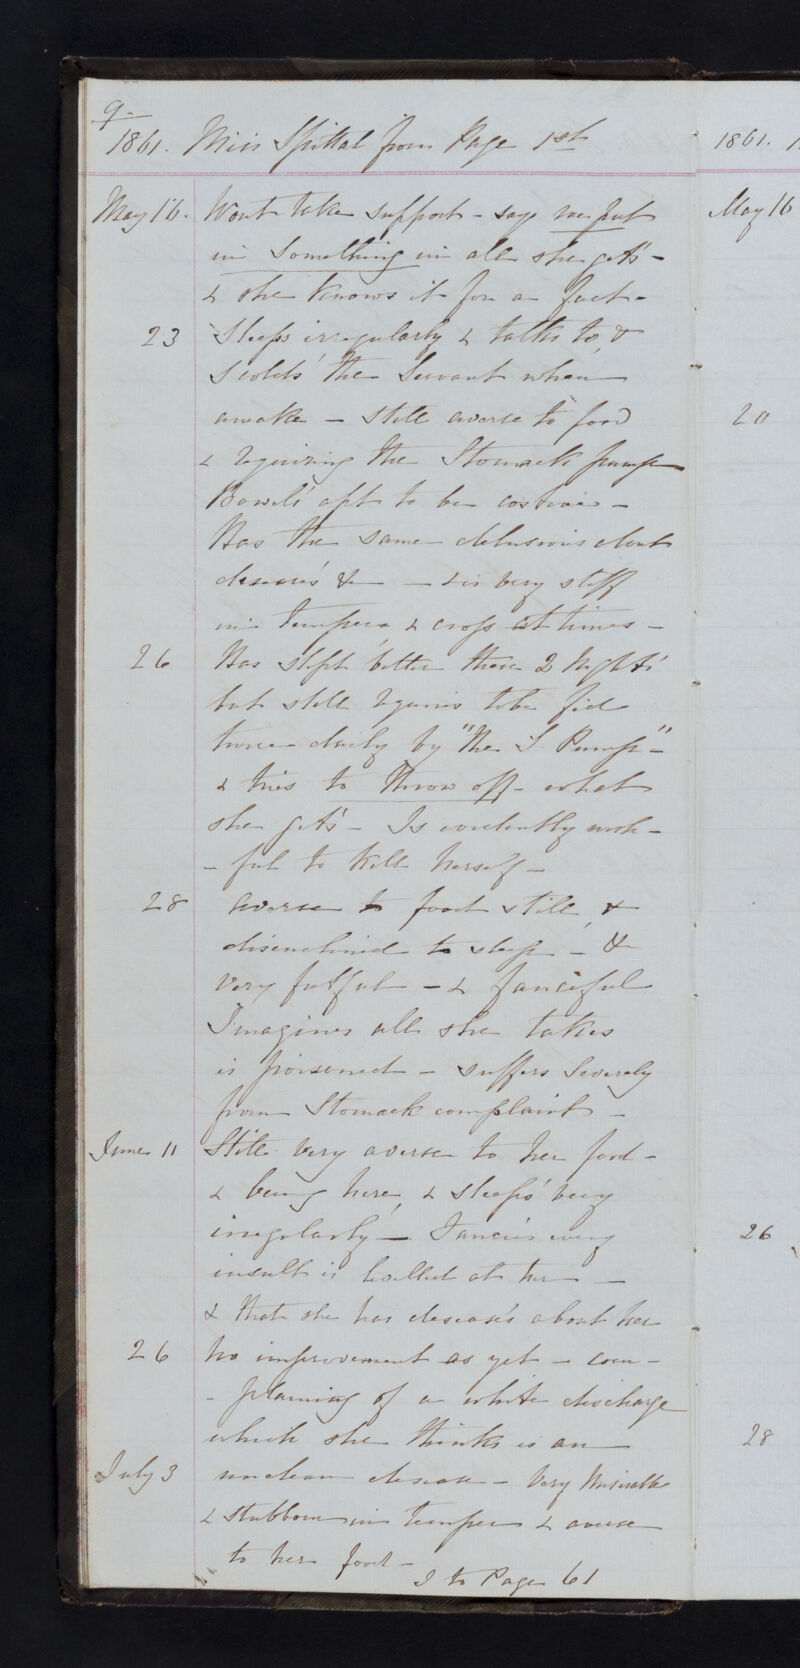 9
1861. Miss Spittal from Page 1st
May 16. Wont take support - says we put
in something in all she gets -
& she knows it for a fact -
23 Sleeps irregularly & talks to, &
scolds the Servant when
awake - still averse to food
& requiring the Stomach pump
Bowels apt to be costive -
Has the same delusions about
diseases &c - & is very stiff
in temper & cross at times -
26 Has slept better these 2 Nights
but still requires to be fed
twice daily by "the S. Pump" -
& tries to throw off - what
she gets - Is evidently wish-
-ful to kill herself -
28 averse to food still, &
disenclined to sleep - &
very fretful - & fanciful
Imagines all she takes
is poisoned - suffers severely
from Stomach complaint -
June 11 Still very averse to her food -
& being here, & sleeps very
irregularly - Fancies every
insult is hurled at her -
& that she has diseases about her
26 No improvement as yet - com-
- plaining of a white discharge
which she thinks is an
July 3 unclean disease - Very Miserable
& stubborn in temper & averse
to her food -
to Page 61
1861.
May 16
20
26
28